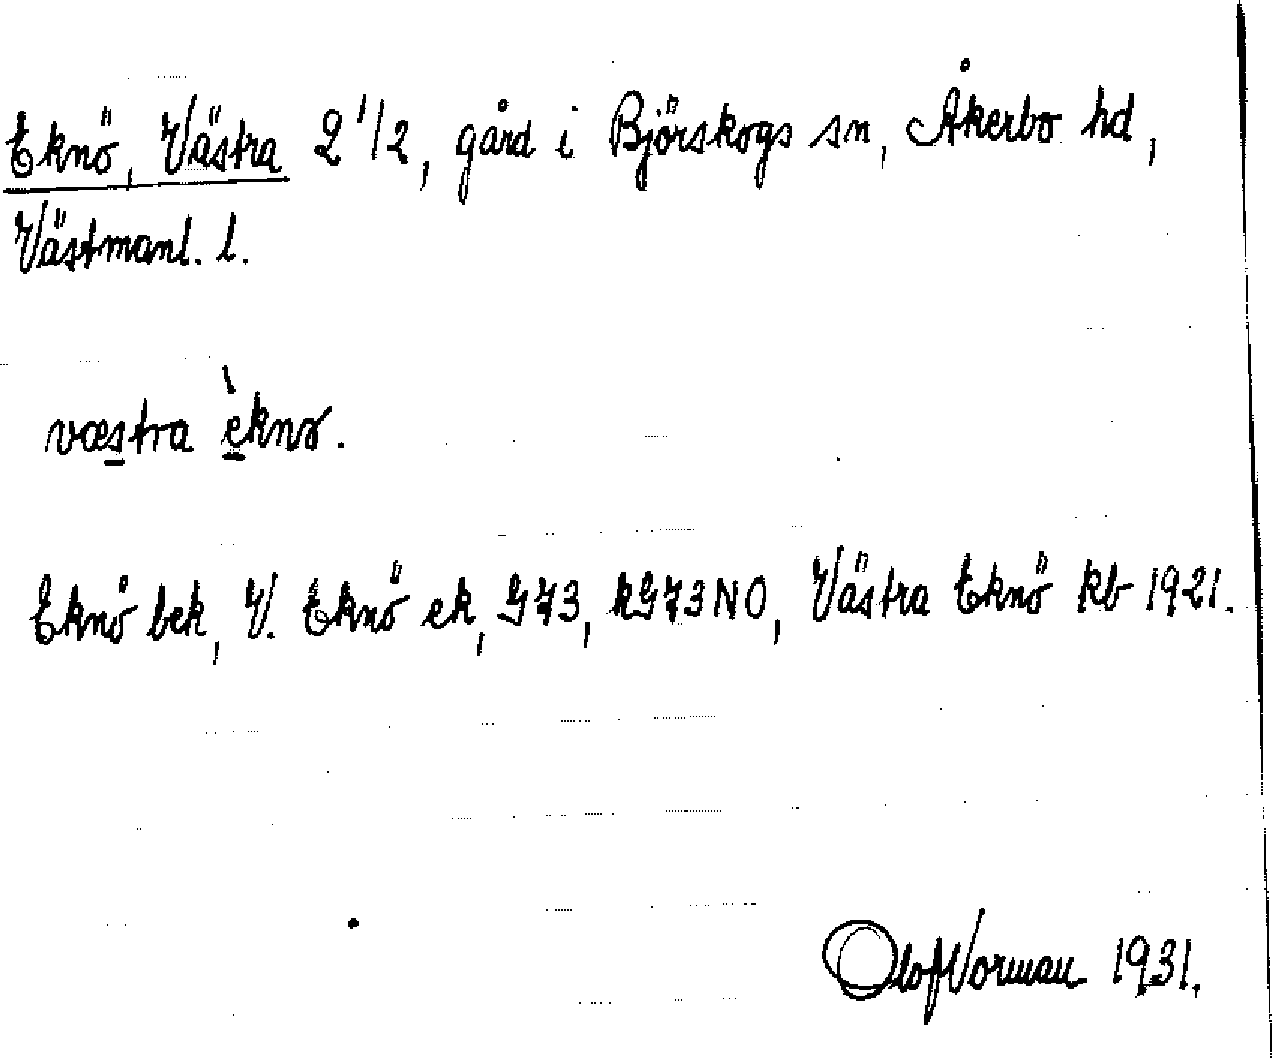 Eknö, Västra 2 1/2, gård i Björskogs sn, Åkerbo hd,
Västmanl. l.
væstra èknø.
Eknö bek, V. Eknö ek, G73, kG73NO, Västra Eknö kb 1921.
Olof Vorman 1931.